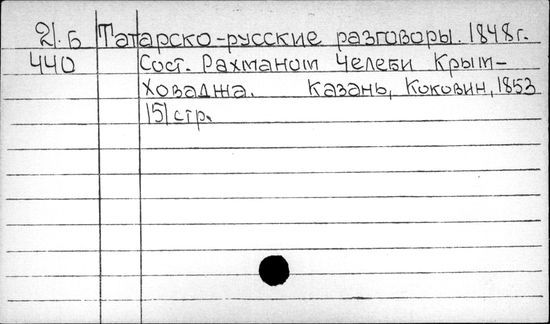 21.Б Татарско-русские разговоры. 1848г.
440 Сост. Рахманом Челеби Крым-
Ховаджа. Казань, Коковин, 1853
151 стр.